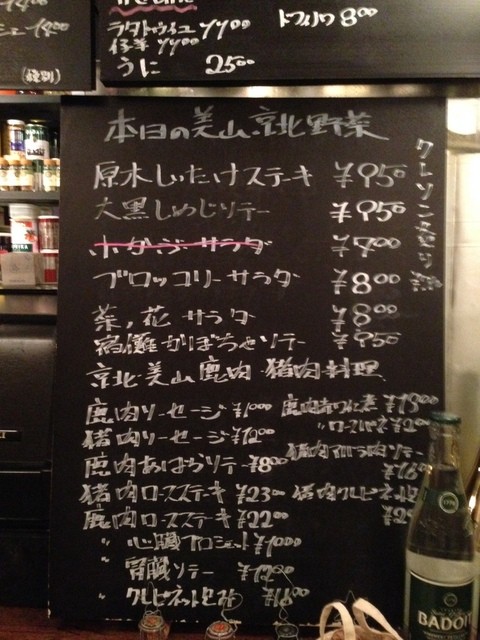 (種別)
トフィノワ 800
ラタトゥイユ
仔羊
うに 2500
本日の美山、京北野菜
原木しいたけステーキ ¥950
大黒しめじソテー ¥950
赤かぶサラダ ¥700
ブロッコリーサラダ ¥800
菜ノ花 サラダ ¥800
宿儺かぼちゃソテー ¥950
京北・美山 鹿肉・猪肉料理
鹿肉ソーセージ ¥1000
猪肉ソーセージ ¥1200
鹿肉あばらソテー ¥800
猪肉ロースステーキ ¥2300
鹿肉ロースステーキ ¥2200
〃 心臓ブロシェット ¥1000
〃 腎臓ソテー ¥1200
〃 クレピネット包み ¥1800
鹿肉赤ワイン煮
猪肉
猪肉クレピネット包
BADOIT